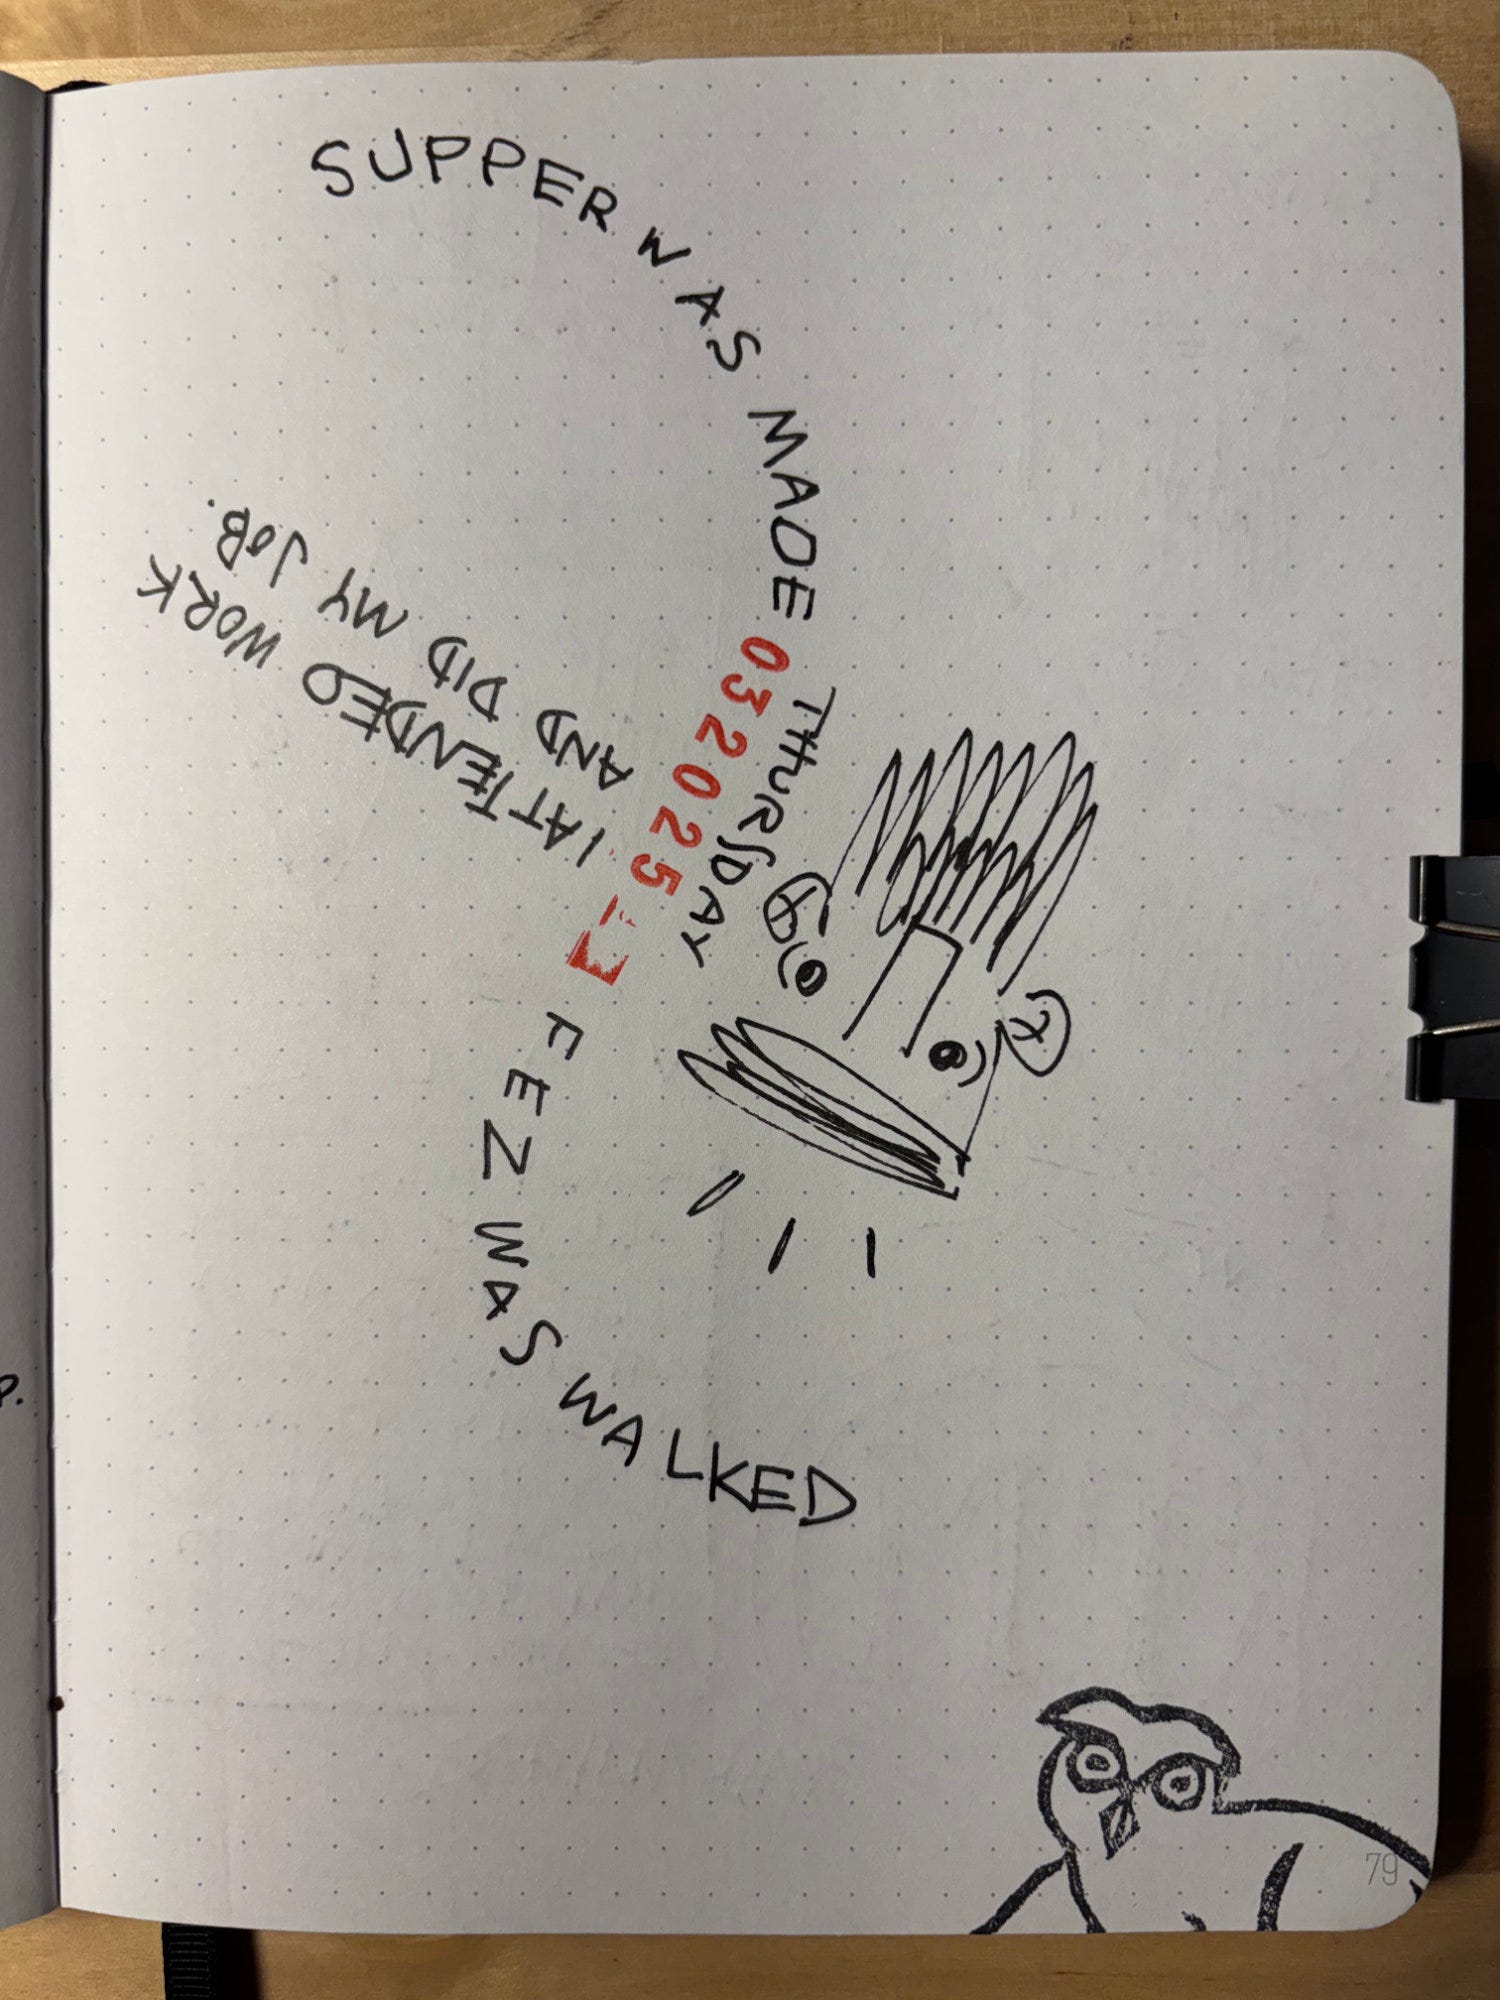 P.
SUPPER WAS MADE
032025
THURSDAY
I ATTENDED WORK
AND DID MY JOB.
FEZ WAS WALKED
79